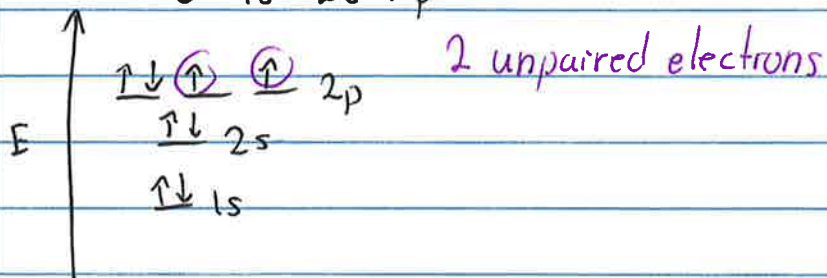 2 unpaired electrons
↑↓ ↑ ↑ 2p
E
↑↓ 2s
↑↓ 1s